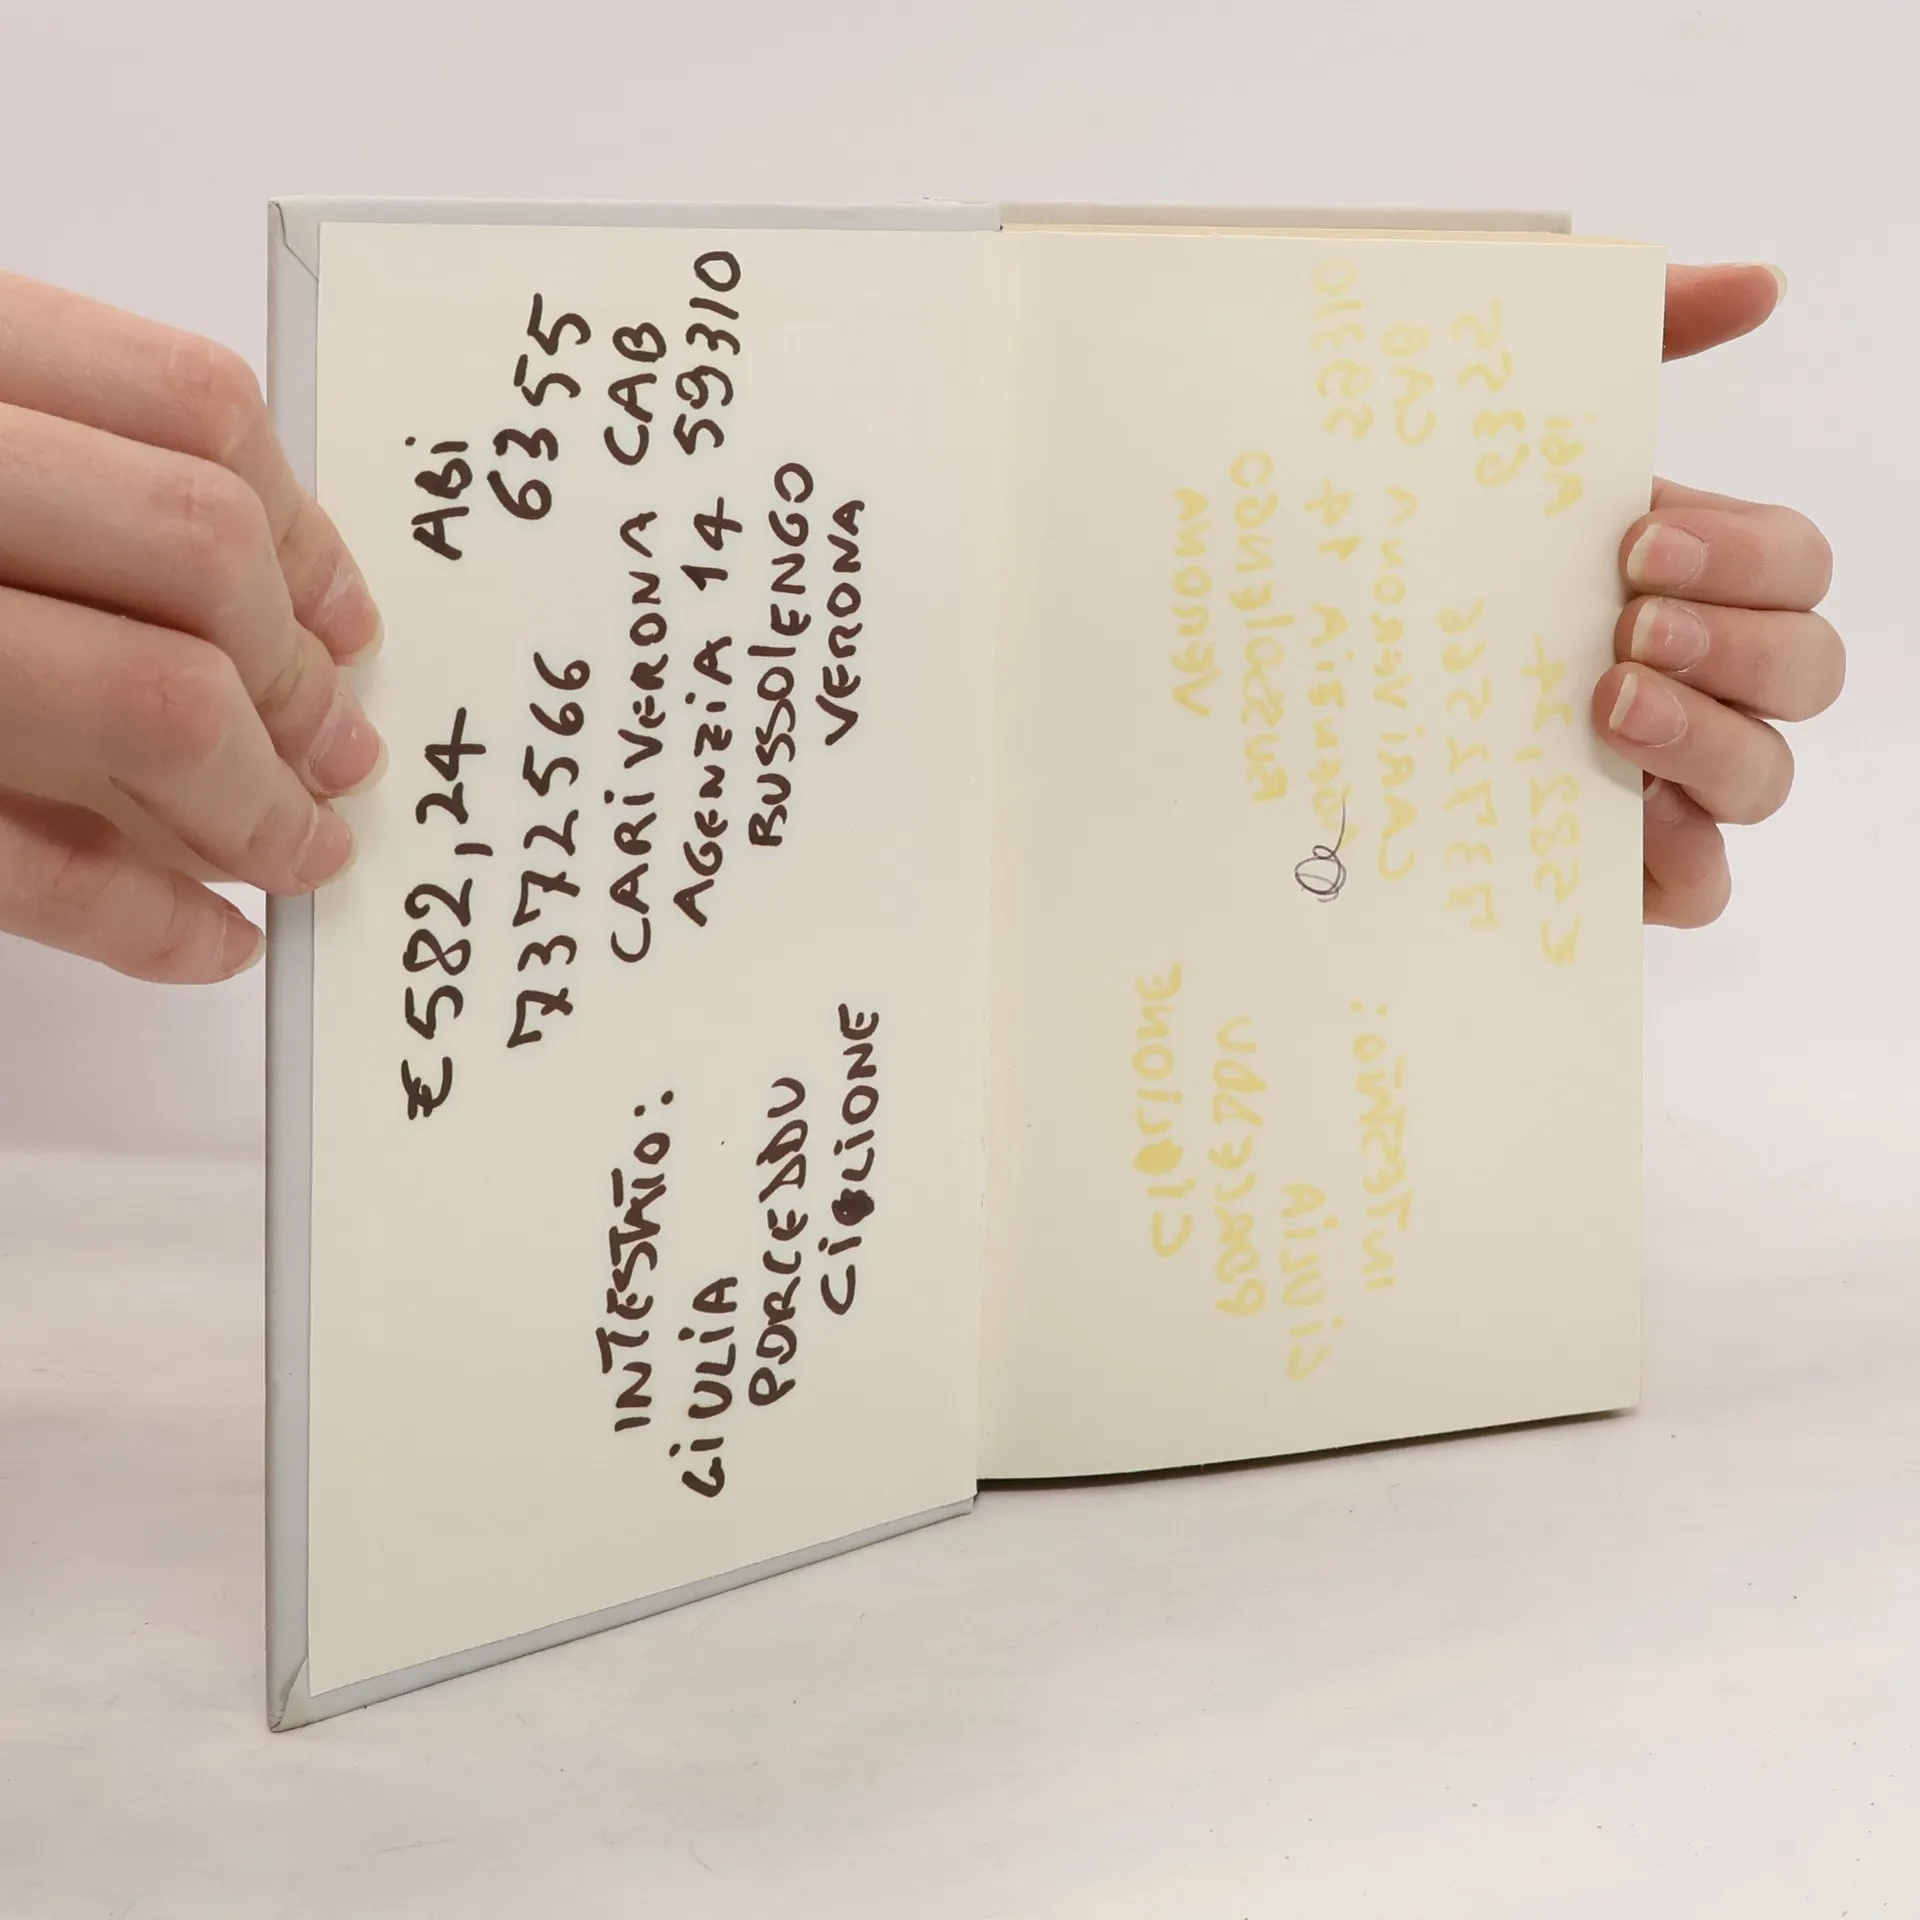 € 582,24 ABi
7372566 6355
CARiVERONA CAB
AGENZiA 14 59310
BUSSOlENGO
VERONA
INTESTATO:
GiULiA
PORCEDDU
CiOLiONE